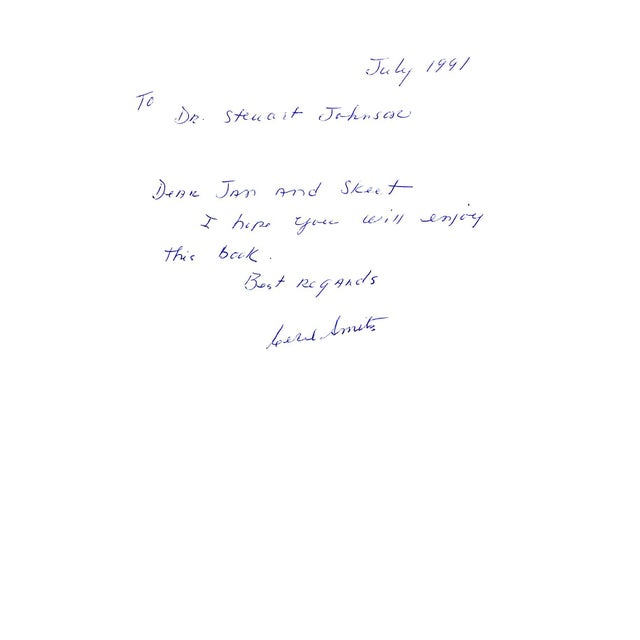 July 1991
To
Dr. Steuart Johnson
Dear Jan and Skeet
I hope you will enjoy
this book.
Best regards
Cecil Smith